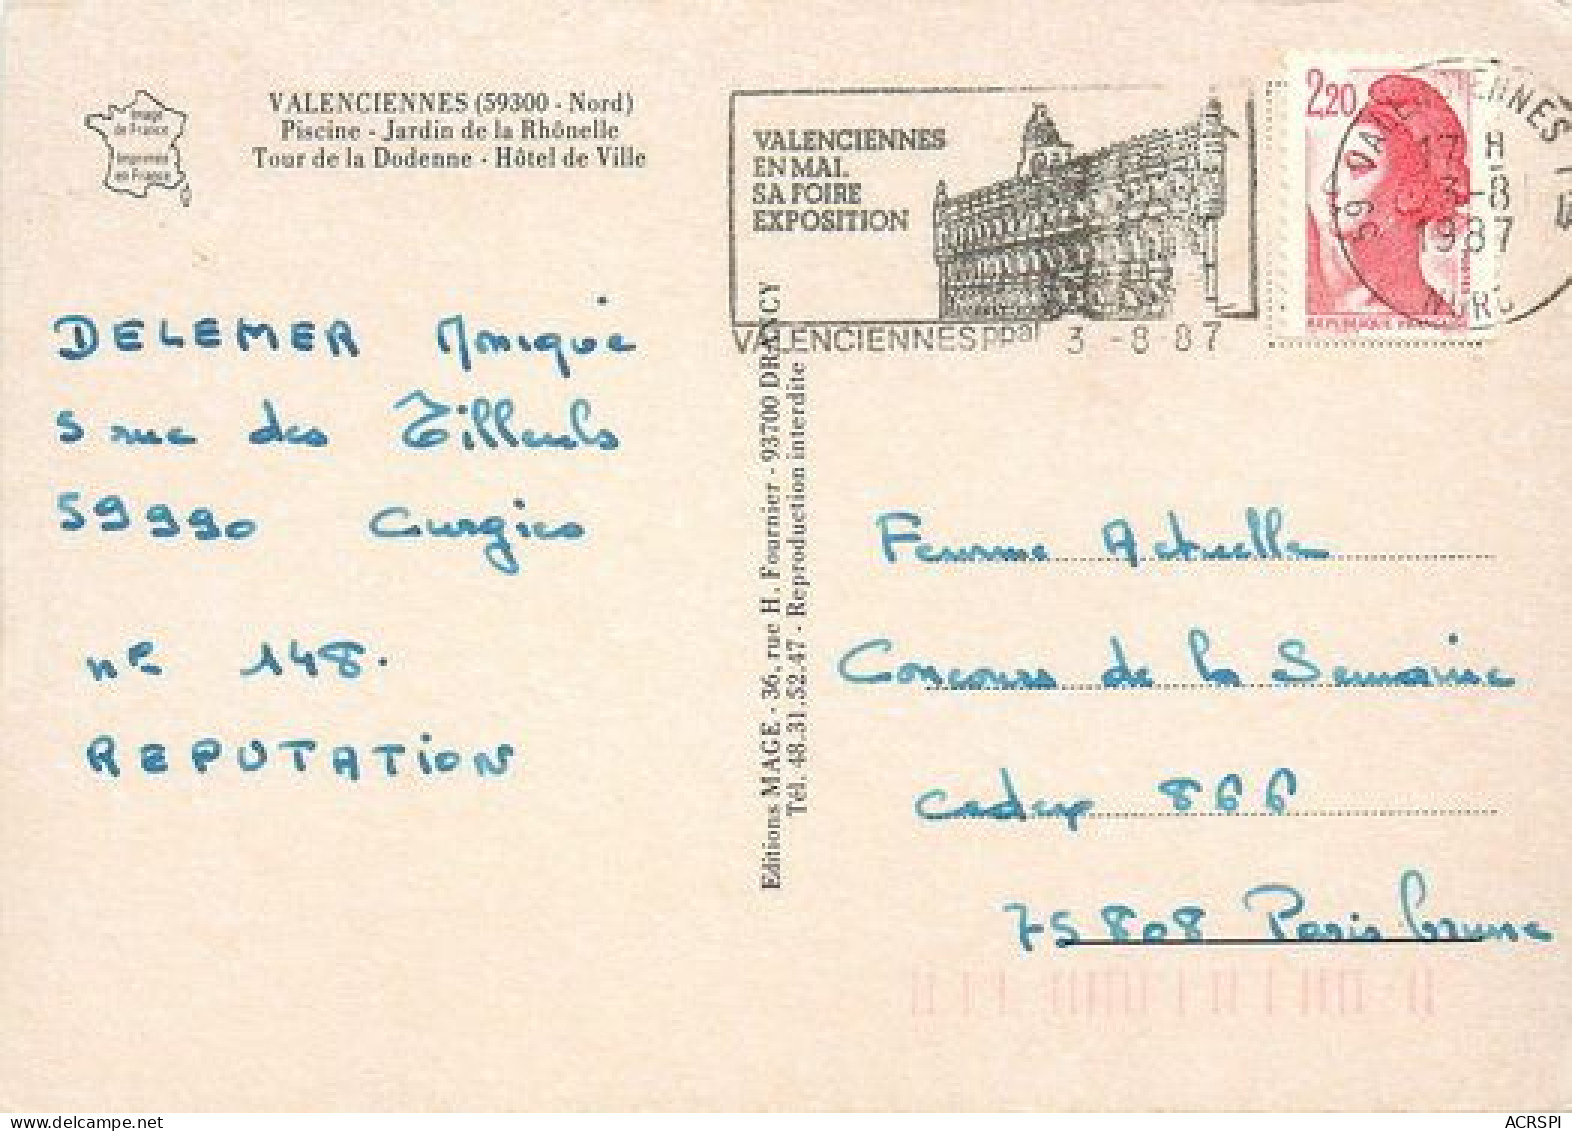 Image
de France
Imprimée
en France
VALENCIENNES (59300 - Nord)
Piscine - Jardin de la Rhônelle
Tour de la Dodenne - Hôtel de Ville
VALENCIENNES
EN MAI.
SA FOIRE
EXPOSITION
VALENCIENNES ppal 3 -8 -87
2,20
REPUBLIQUE FRANÇAISE
59 VALENCIENNES
17 H
3-8
1987
NORD
DELEMER Monique
5 rue des Tilleuls
59990 Curgies
n° 148.
REPUTATION
Editions MAGE - 36, rue H. Fournier - 93700 DRANCY
Tél. 48.31.52.47 - Reproduction interdite
Femme Actuelle
Concours de la Semaine
cedex 866
75808 Paris brune
ACRSPI